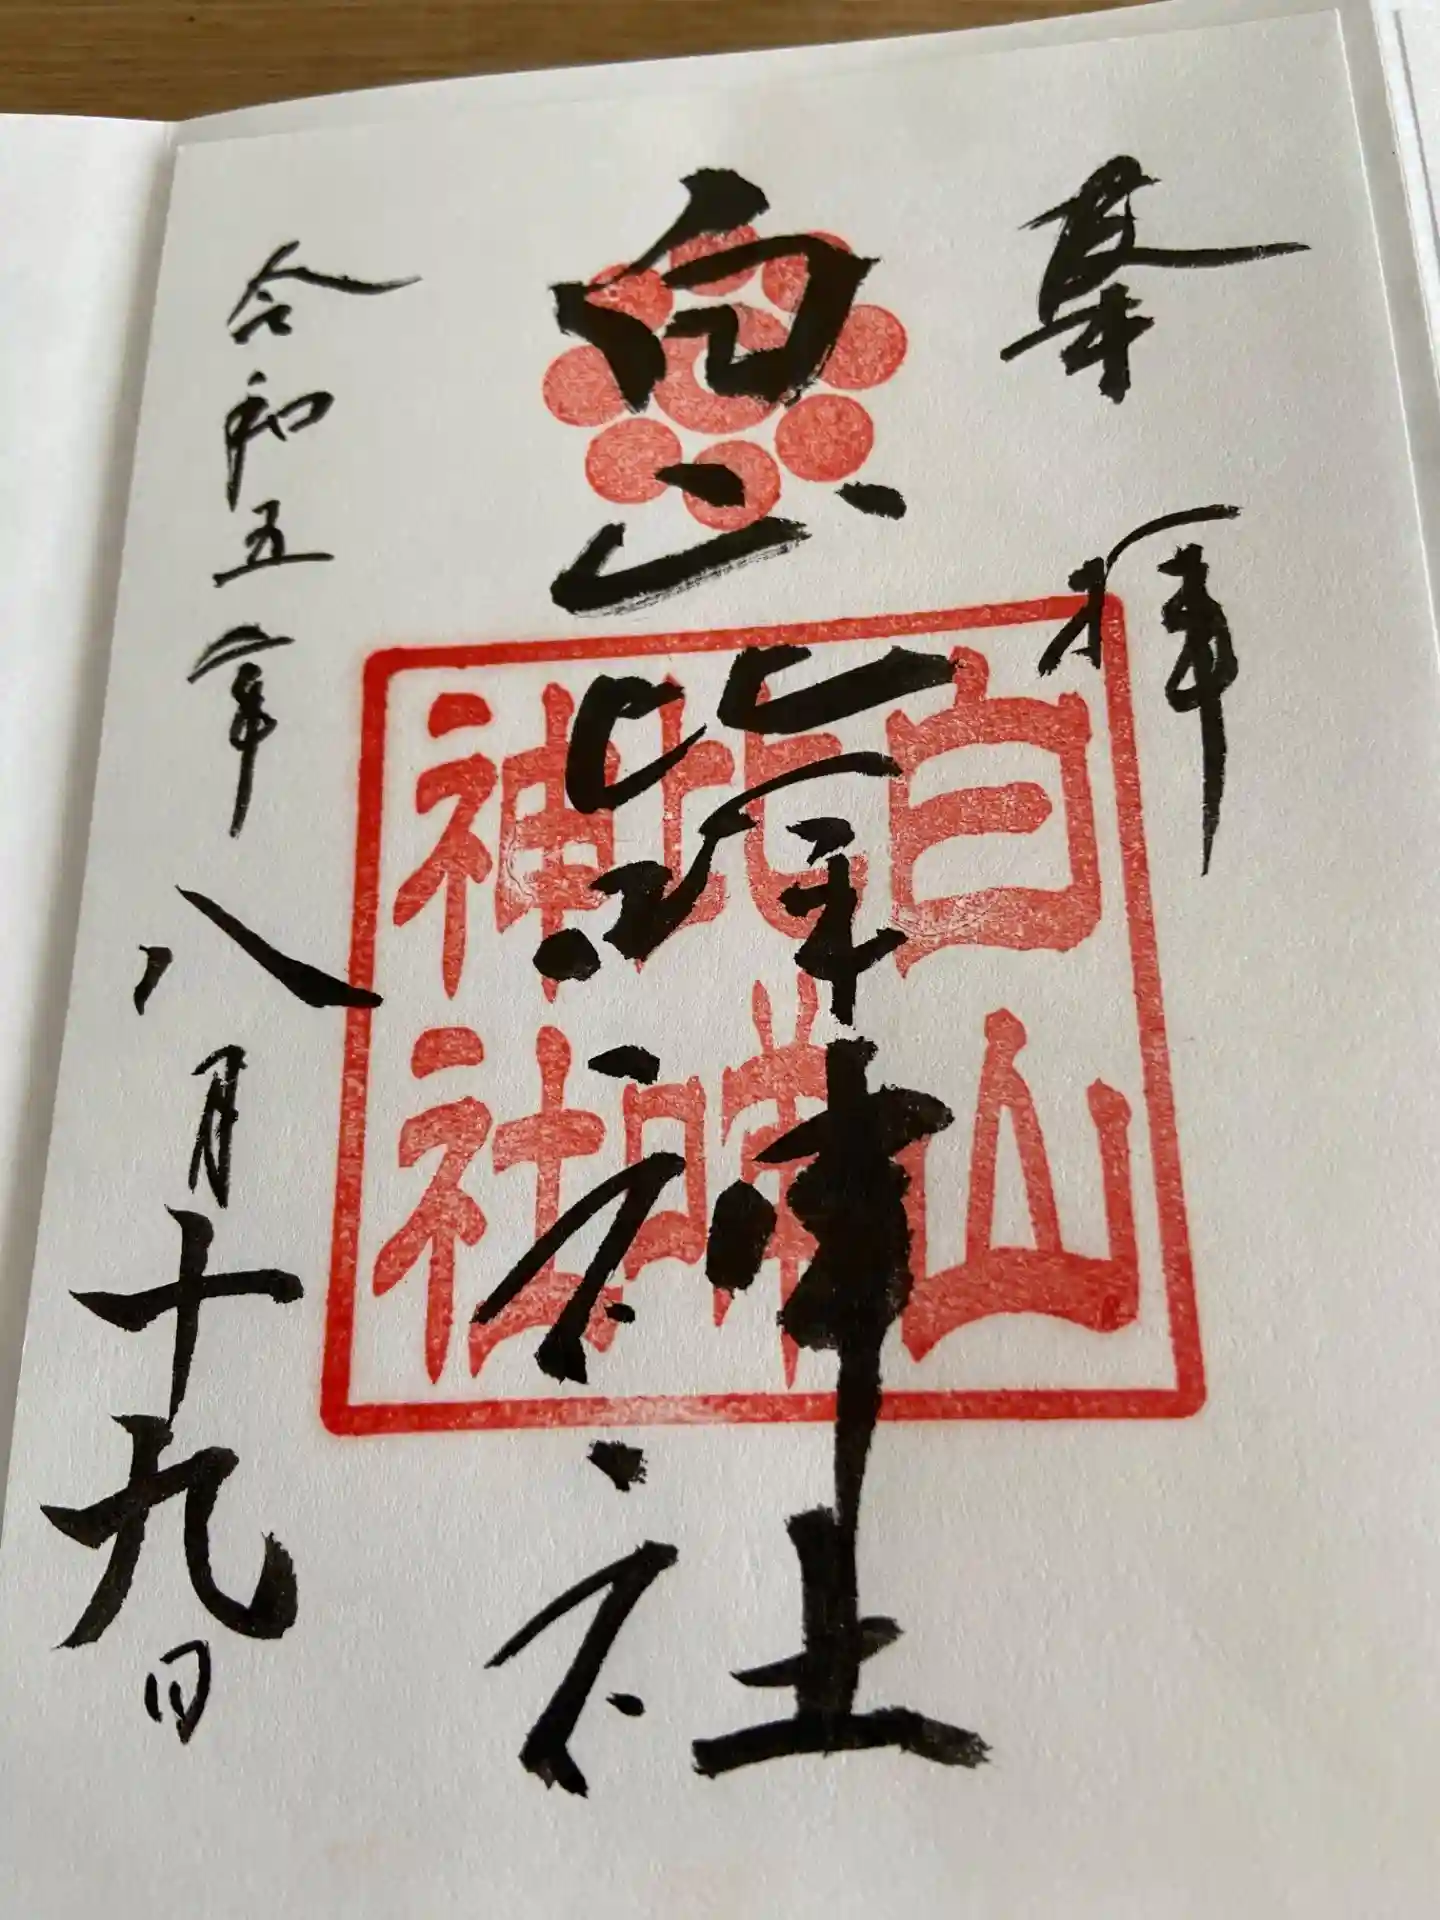 奉拝
白山比咩神社
令和五年八月十九日
白山
比咩
神社